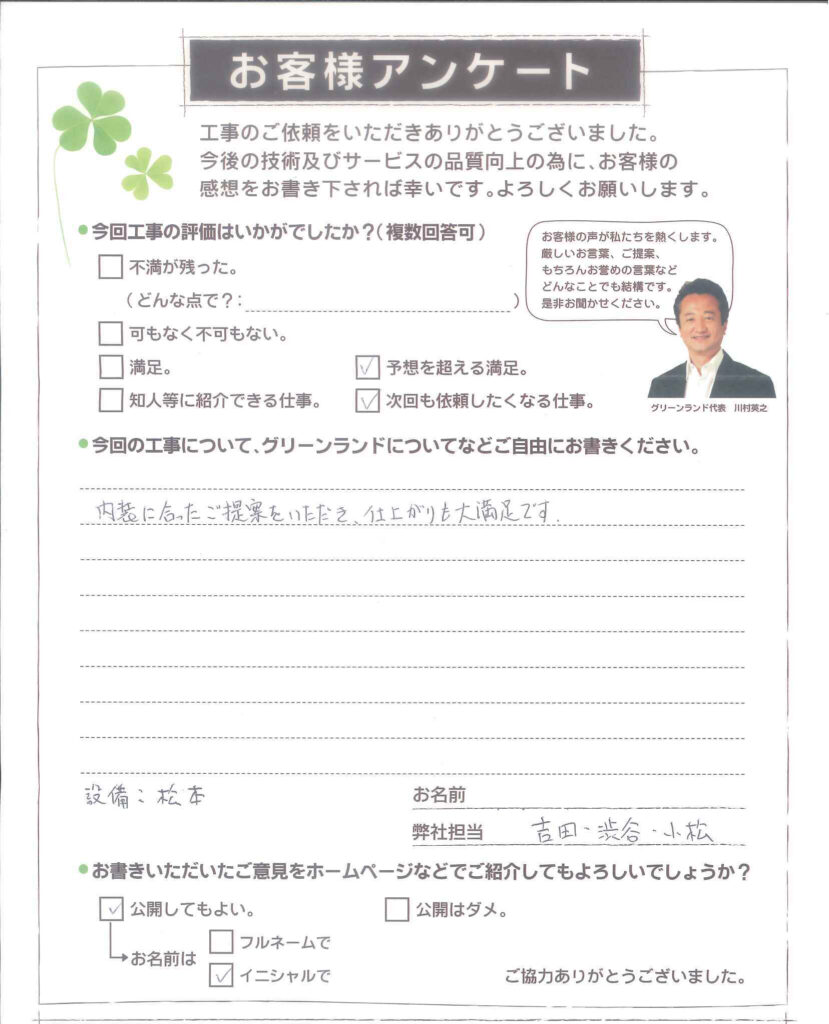 お客様アンケート
工事のご依頼をいただきありがとうございました。
今後の技術及びサービスの品質向上の為に、お客様の
感想をお書き下されば幸いです。よろしくお願いします。
●今回工事の評価はいかがでしたか?(複数回答可)
お客様の声が私たちを熱くします。
厳しいお言葉、ご提案、
もちろんお誉めの言葉など
どんなことでも結構です。
是非お聞かせください。
グリーンランド代表 川村英之
□不満が残った。
(どんな点で?: )
□可もなく不可もない。
□満足。 ☑予想を超える満足。
□知人等に紹介できる仕事。 ☑次回も依頼したくなる仕事。
●今回の工事について、グリーンランドについてなどご自由にお書きください。
内装に合ったご提案をいただき、仕上がりも大満足です.
設備:松本 お名前
弊社担当 吉田・渋谷・小松
●お書きいただいたご意見をホームページなどでご紹介してもよろしいでしょうか?
☑公開してもよい。 □公開はダメ。
お名前は □フルネームで
☑イニシャルで ご協力ありがとうございました。